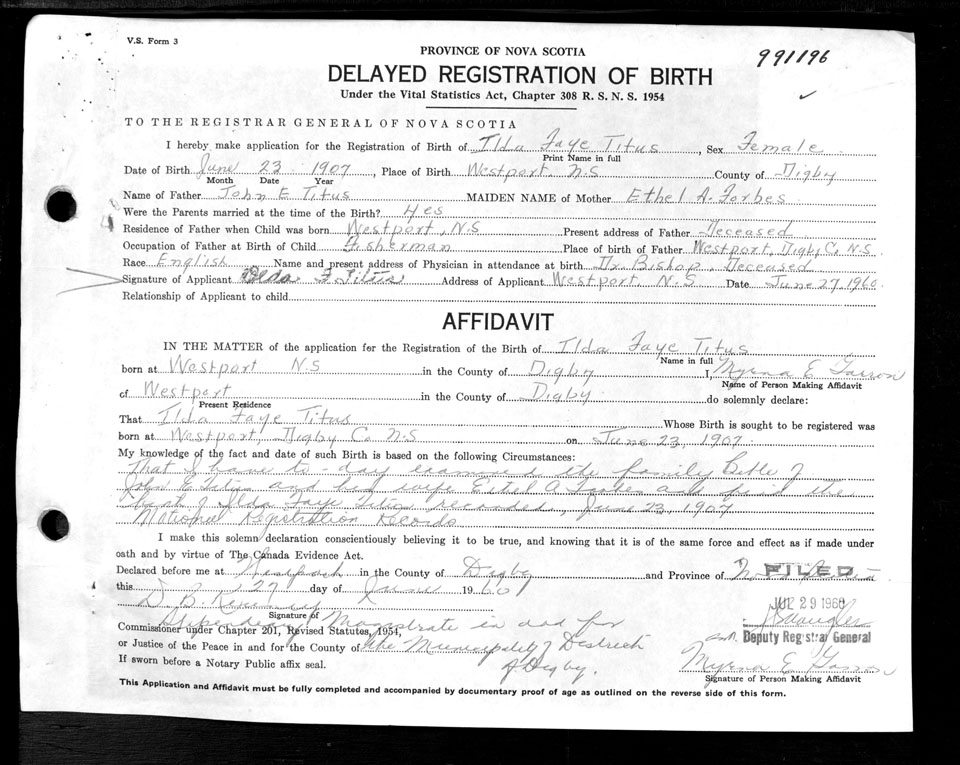 V.S. Form 3
991196
PROVINCE OF NOVA SCOTIA
DELAYED REGISTRATION OF BIRTH
Under the Vital Statistics Act, Chapter 308 R. S. N. S. 1954
TO THE REGISTRAR GENERAL OF NOVA SCOTIA
I hereby make application for the Registration of Birth of Ilda Faye Titus, Sex Female
Print Name in full
Date of Birth June 23 1907, Place of Birth Westport N.S County of Digby
Month Date Year
Name of Father John E Titus MAIDEN NAME of Mother Ethel A. Forbes
Were the Parents married at the time of the Birth? Yes
Residence of Father when Child was born Westport, N.S Present address of Father Deceased
Occupation of Father at Birth of Child Fisherman Place of birth of Father Westport, Digby C, N.S
Race English Name and present address of Physician in attendance at birth Dr Bishop, Deceased
Signature of Applicant Ilda F Titus Address of Applicant Westport N.S Date June 27, 1960
Relationship of Applicant to child
AFFIDAVIT
IN THE MATTER of the application for the Registration of the Birth of Ilda Faye Titus
Name in full
born at Westport N.S in the County of Digby I, Myrna E
Name of Person Making Affidavit
of Westport in the County of Digby do solemnly declare:
Present Residence
That Ilda Faye Titus Whose Birth is sought to be registered was
born at Westport, Digby C. N.S on June 23, 1907
My knowledge of the fact and date of such Birth is based on the following Circumstances:
That I have to-day examined the family Bible of
John E Titus and his wife Ethel A Forbes and find the
birth of Ilda Faye Titus recorded, June 23, 1907
National Registration Records
I make this solemn declaration conscientiously believing it to be true, and knowing that it is of the same force and effect as if made under
oath and by virtue of The Canada Evidence Act.
Declared before me at Westport in the County of Digby and Province of
FILED
this 27 day of June 1960
JUL 29 1960
D. B.
Signature of
Stipendiary Magistrate in and for
Commissioner under Chapter 201, Revised Statutes, 1954,
Deputy Registrar General
or Justice of the Peace in and for the County of the Municipality of District
of Digby.
Myrna E
If sworn before a Notary Public affix seal.
Signature of Person Making Affidavit
This Application and Affidavit must be fully completed and accompanied by documentary proof of age as outlined on the reverse side of this form.